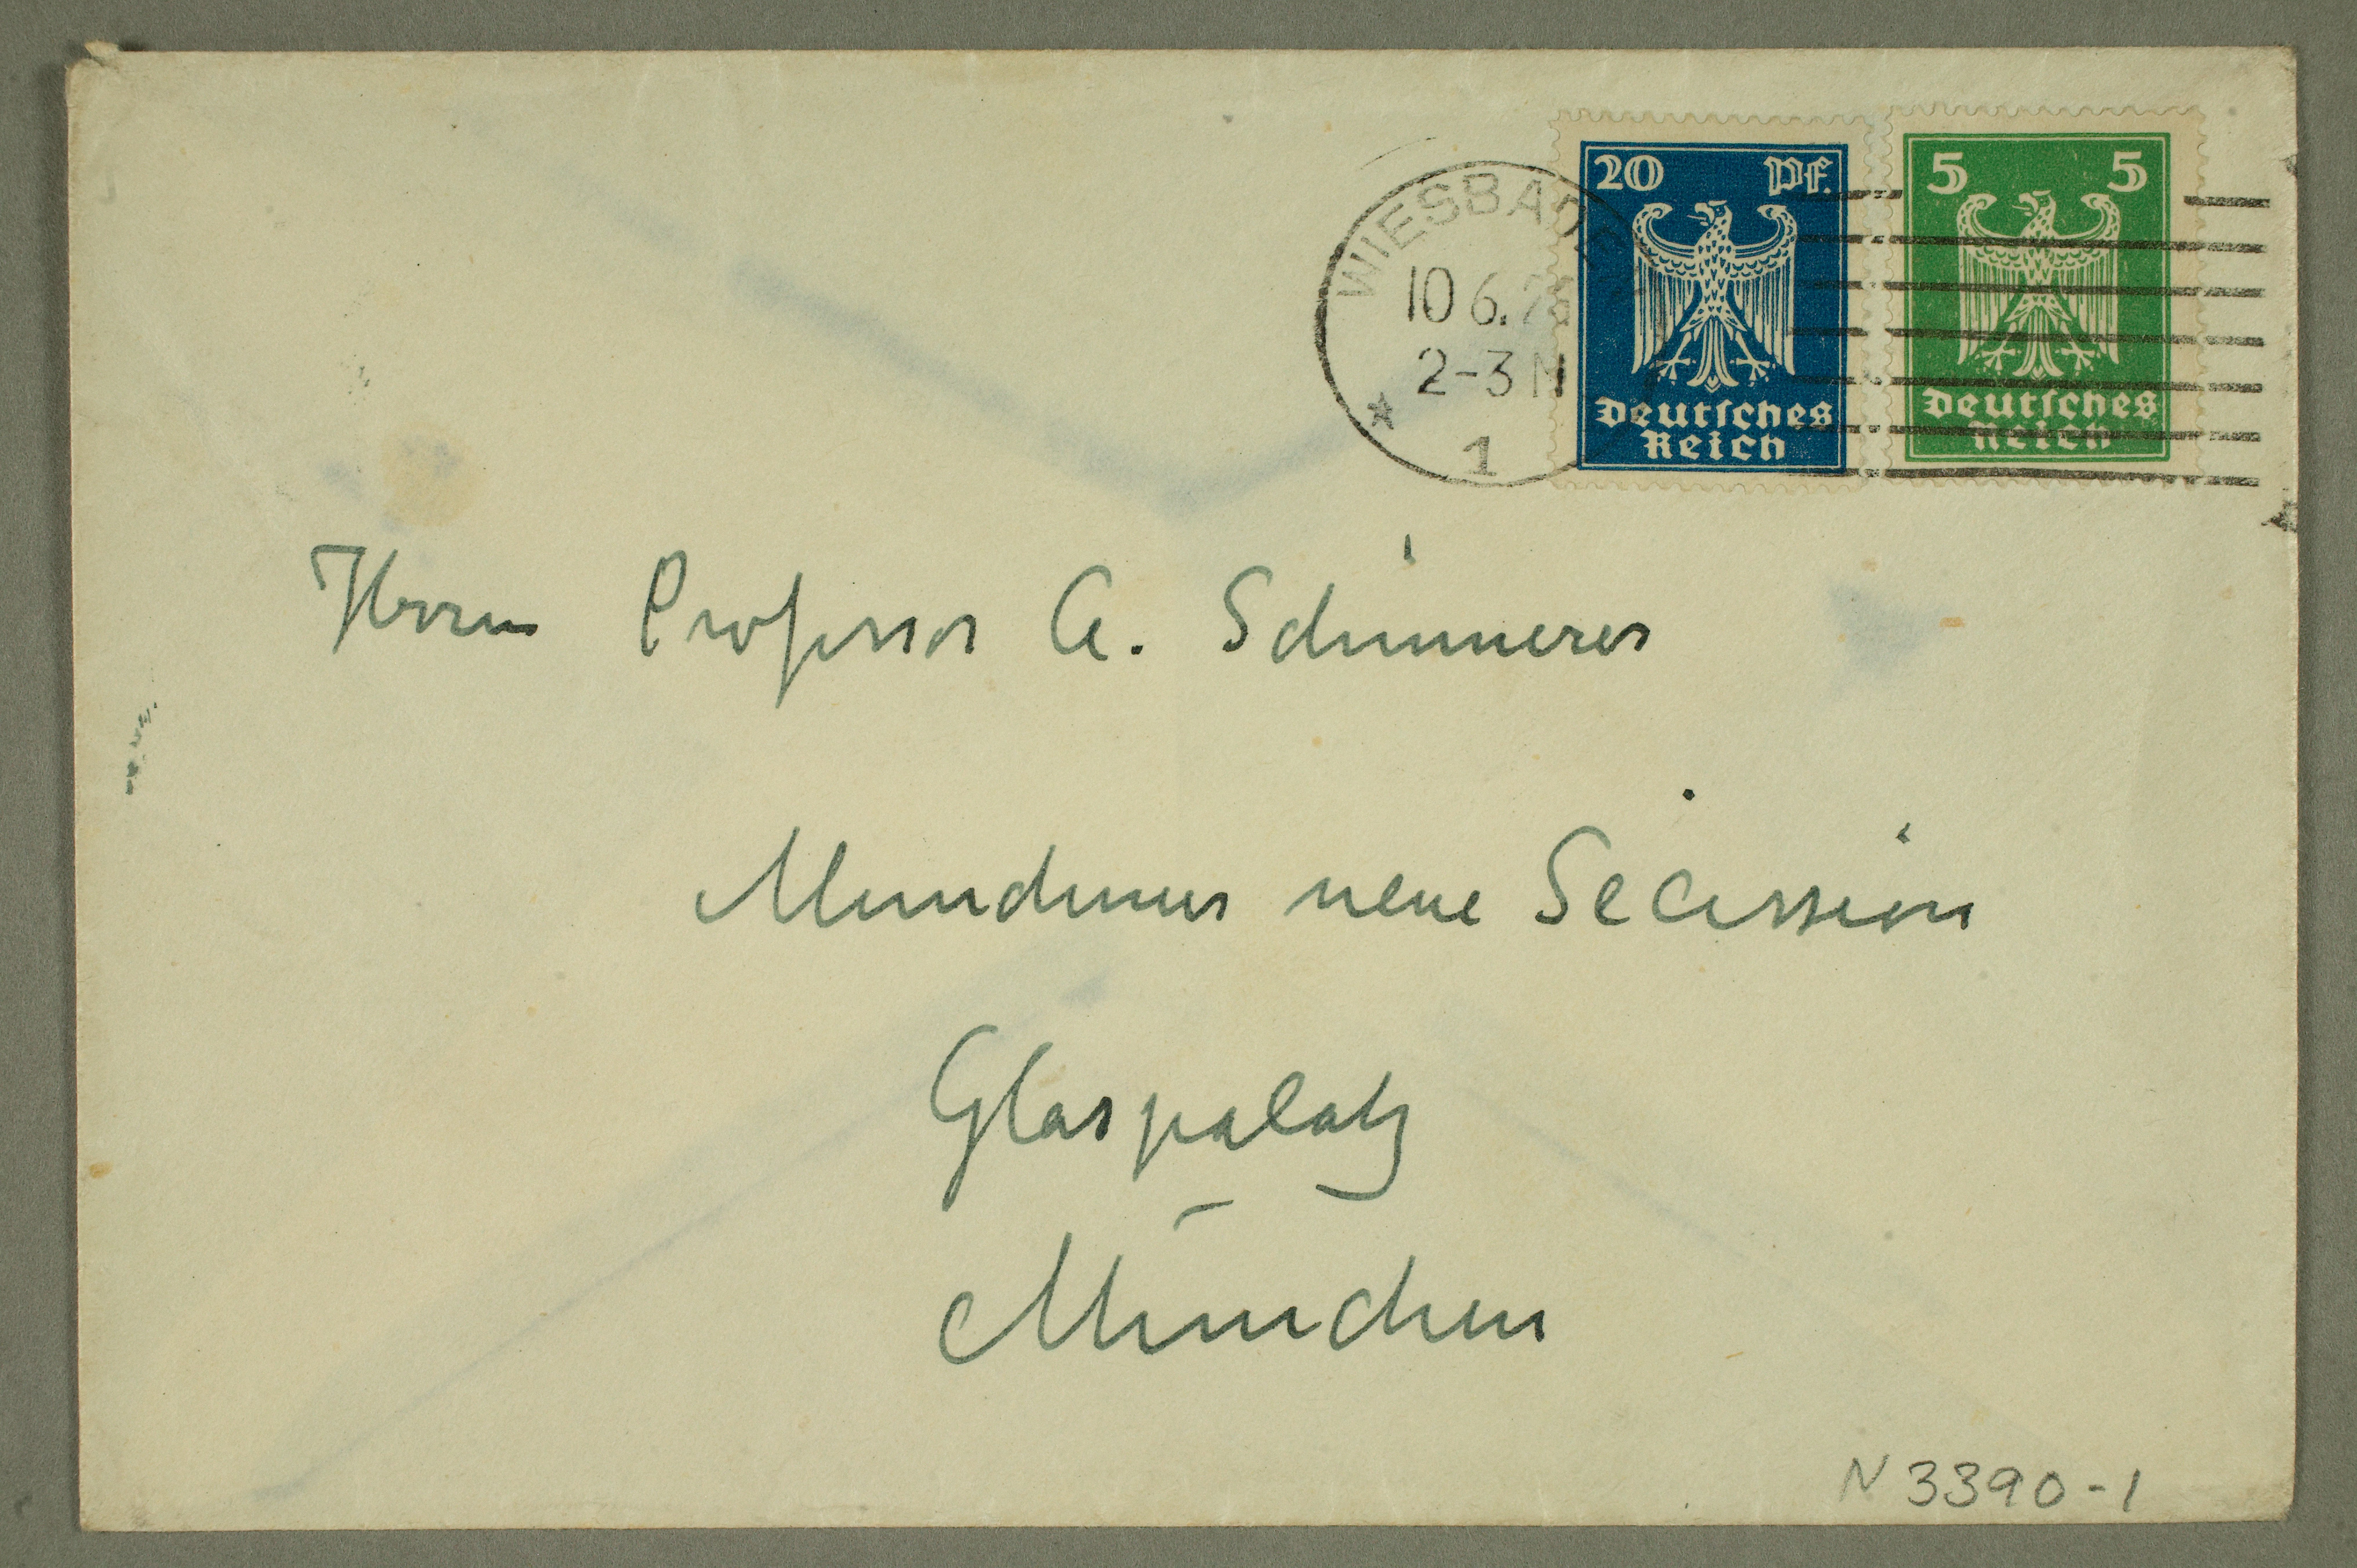 WIESBADEN
10 6. 26
2-3 N
* 1
20 Pf.
Deutsches
Reich
5 5
Deutsches
Reich
Herrn Professor A. Schinnerer
Münchener neue Secession
Glaspalatz
München
N 3390-1